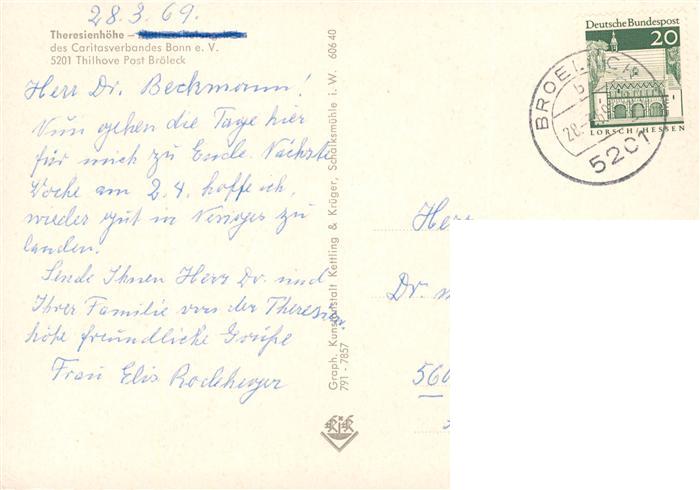 28.3.69.
Theresienhöhe –
des Caritasverbandes Bonn e. V.
5201 Thilhove Post Bröleck
Herr Dr. Beckmann!
Nun gehen die Tage hier
für mich zu Ende. Nächste
Woche am 2.4. hoffe ich,
wieder gut in Neviges zu
landen.
Sende Ihnen Herr Dr. und
Ihrer Familie von der Theresien-
höhe freundliche Grüße
Frau Elis
Graph. Kunstanstalt Kettling & Krüger, Schalksmühle i. W. 606 40
791 - 7857
K&K
Deutsche Bundespost
20
LORSCH/HESSEN
5201
Herr
Dr. m
560